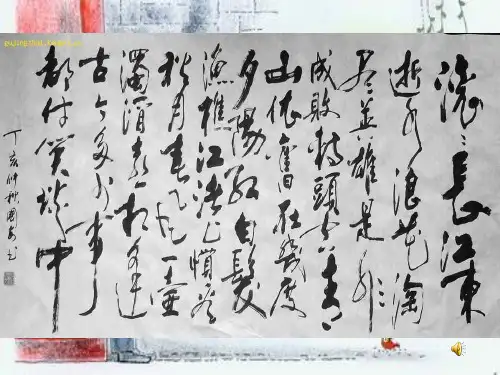 滚滚長江東
逝水浪花淘
尽英雄是非
成敗轉頭空青
山依舊在幾度
夕陽紅白髮
漁樵江渚上慣看
秋月春风一壺
濁酒喜相逢
古今多少事
都付笑談中
丁亥仲秋